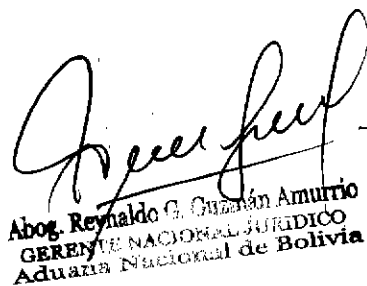 Abog. Reynaldo G. Guzmán Amurrio
GERENTE NACIONAL JURIDICO
Aduana Nacional de Bolivia